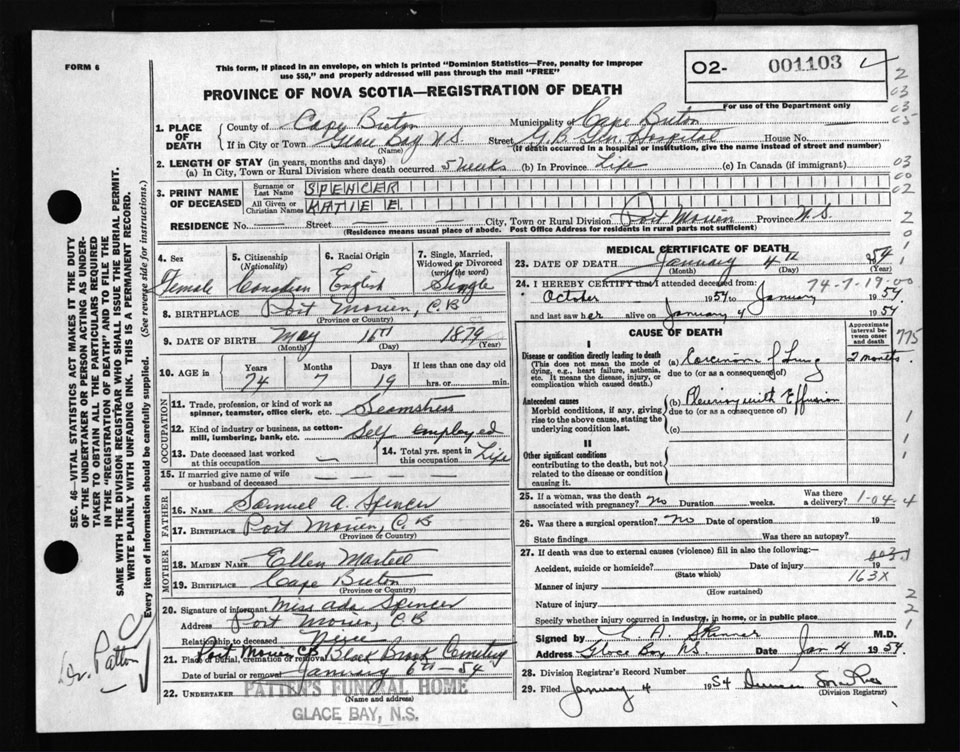 FORM 6
This form, if placed in an envelope, on which is printed "Dominion Statistics—Free, penalty for improper
use $50," and properly addressed will pass through the mail "FREE"
PROVINCE OF NOVA SCOTIA—REGISTRATION OF DEATH
O2- 001103
For use of the Department only
1. PLACE OF DEATH
County of Cape Breton Municipality of Cape Breton
If in City or Town Glace Bay N.S. Street G.B. Gen. Hospital House No.
(Name) (If death occurred in a hospital or institution, give the name instead of street and number)
2. LENGTH OF STAY (in years, months and days)
(a) In City, Town or Rural Division where death occurred 5 weeks (b) In Province Life (c) In Canada (if immigrant)
3. PRINT NAME OF DECEASED
Surname or Last Name SPENCER
All Given or Christian Names KATIE E.
RESIDENCE No. — Street — City, Town or Rural Division Port Morien Province N.S.
(Residence means usual place of abode. Post Office Address for residents in rural parts not sufficient)
4. Sex Female
5. Citizenship (Nationality) Canadian
6. Racial Origin English
7. Single, Married, Widowed or Divorced (write the word) Single
8. BIRTHPLACE Port Morien, C.B
(Province or Country)
9. DATE OF BIRTH May 16th 1879
(Month) (Day) (Year)
10. AGE in Years Months Days If less than one day old
74 7 19 hrs. or min.
OCCUPATION
11. Trade, profession, or kind of work as spinner, teamster, office clerk, etc. Seamstress
12. Kind of industry or business, as cotton-mill, lumbering, bank, etc. Self employed
13. Date deceased last worked at this occupation —
14. Total yrs. spent in this occupation Life
15. If married give name of wife or husband of deceased —
FATHER
16. NAME Samuel A. Spencer
17. BIRTHPLACE Port Morien, C.B
(Province or Country)
MOTHER
18. MAIDEN NAME Ellen Martell
19. BIRTHPLACE Cape Breton
(Province or Country)
20. Signature of informant Miss Ada Spencer
Address Port Morien, C.B
Relationship to deceased Niece
21. Place of burial, cremation or removal Port Morien CB Black Brook Cemetery
Date of burial or removal January 6th - 54
22. UNDERTAKER PATTEN'S FUNERAL HOME
(Name and address)
GLACE BAY, N.S.
MEDICAL CERTIFICATE OF DEATH
23. DATE OF DEATH January 4th 54
(Month) (Day) (Year)
24. I HEREBY CERTIFY that I attended deceased from: 74-7-19-00
October 1954 to January 1954
and last saw her alive on January 4 1954
CAUSE OF DEATH
Approximate interval between onset and death
I
Disease or condition directly leading to death
(This does not mean the mode of dying, e.g. heart failure, asthenia, etc. It means the disease, injury, or complication which caused death.)
(a) Carcinoma of Lung 2 months
due to (or as a consequence of)
Antecedent causes
Morbid conditions, if any, giving rise to the above cause, stating the underlying condition last.
(b) Pleurisy with Effusion
due to (or as a consequence of)
(c)
II
Other significant conditions
contributing to the death, but not related to the disease or condition causing it.
25. If a woman, was the death associated with pregnancy? No Duration weeks. Was there a delivery? 1-04-4
26. Was there a surgical operation? no Date of operation 19
State findings Was there an autopsy?
27. If death was due to external causes (violence) fill in also the following:—
Accident, suicide or homicide? Date of injury 19
(State which) 163X
Manner of injury
(How sustained)
Nature of injury
Specify whether injury occurred in industry, in home, or in public place
Signed by A. Skinner M.D.
Address Glace Bay NS Date Jan 4 1954.
28. Division Registrar's Record Number
29. Filed January 4 1954 Duncan
(Division Registrar)
SEC. 46—VITAL STATISTICS ACT MAKES IT THE DUTY
OF THE UNDERTAKER OR PERSON ACTING AS UNDER-
TAKER TO OBTAIN ALL THE PARTICULARS REQUIRED
IN THE "REGISTRATION OF DEATH" AND TO FILE THE
SAME WITH THE DIVISION REGISTRAR WHO SHALL ISSUE THE BURIAL PERMIT.
WRITE PLAINLY WITH UNFADING INK. THIS IS A PERMANENT RECORD.
Every item of information should be carefully supplied. (See reverse side for instructions.)
Dr. Patton
775